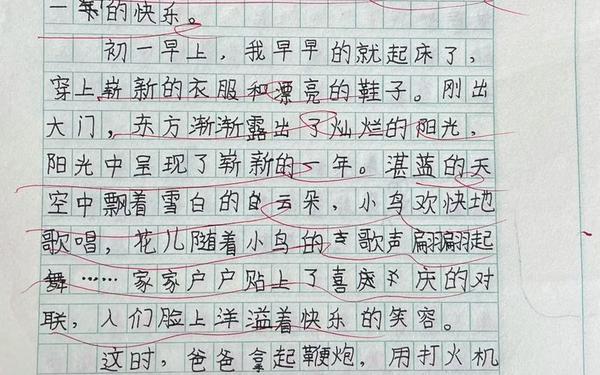 的快乐。
初一早上，我早早的就起床了，
穿上崭新的衣服和漂亮的鞋子。刚出
大门，东方渐渐露出了灿烂的阳光，
阳光中呈现了崭新的一年。湛蓝的天
空中飘着雪白的云朵，小鸟欢快地
歌唱，花儿随着小鸟的歌声翩翩起
舞……家家户户贴上了喜庆的对
联，人们脸上洋溢着快乐的笑容。
这时，爸爸拿起鞭炮，用打火机